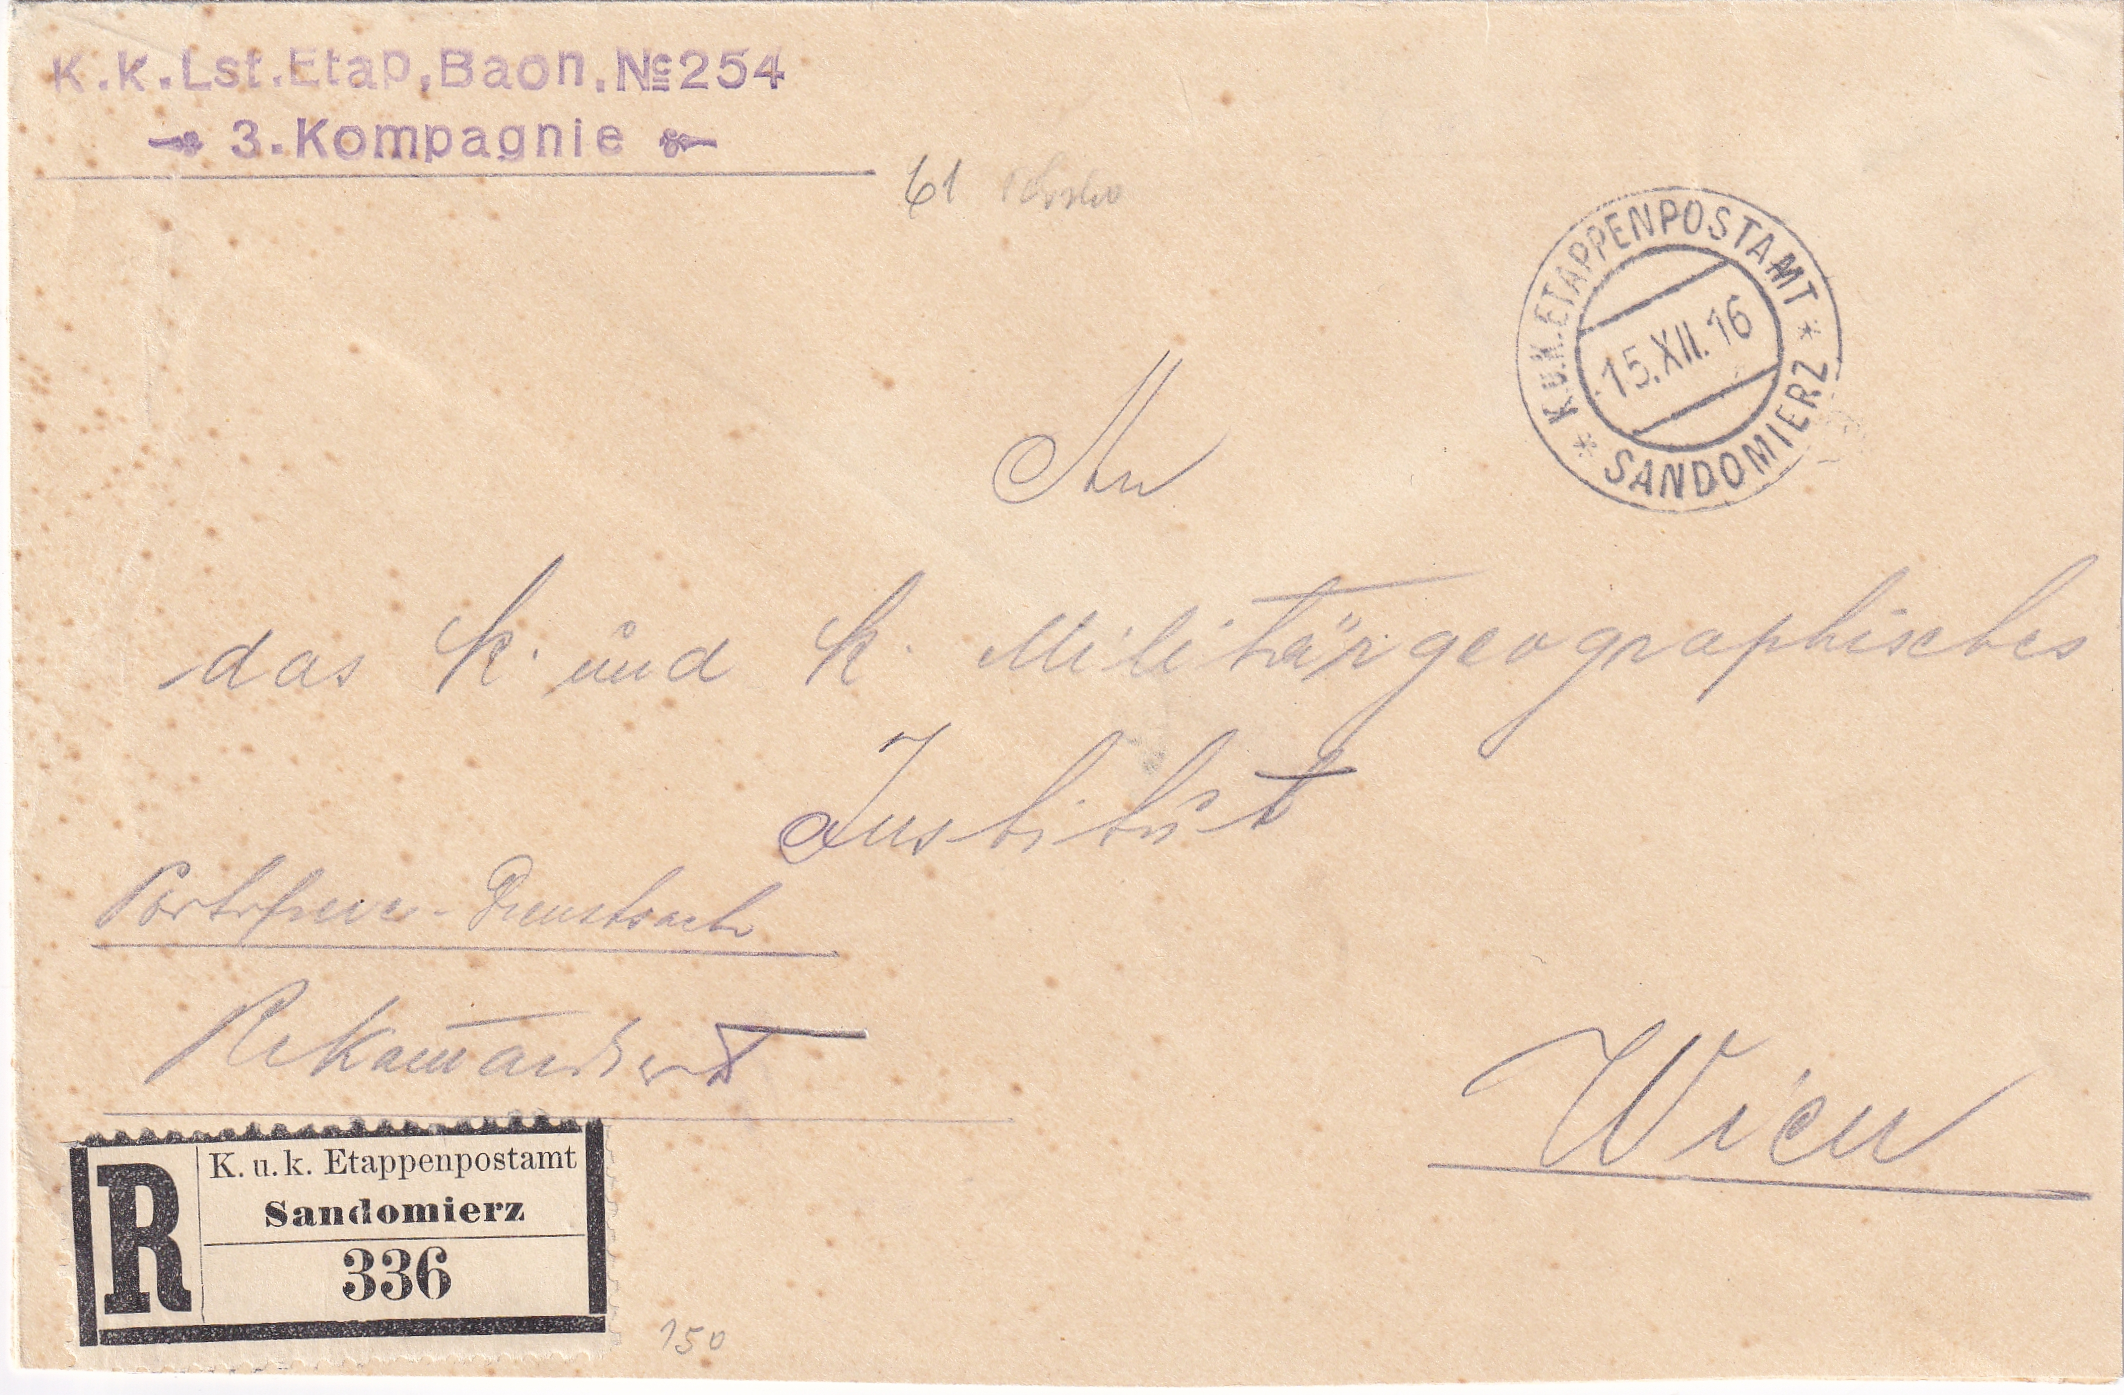 K.k.Lst.Etap,Baon.No254
3.Kompagnie
61
K.u.K. ETAPPENPOSTAMT
15.XII.16
SANDOMIERZ
An
das k. und k. Militärgeographisches
Institut
Portofreie-Dienstsache
Rekomandiert
Wien
R
K. u. k. Etappenpostamt
Sandomierz
336
150